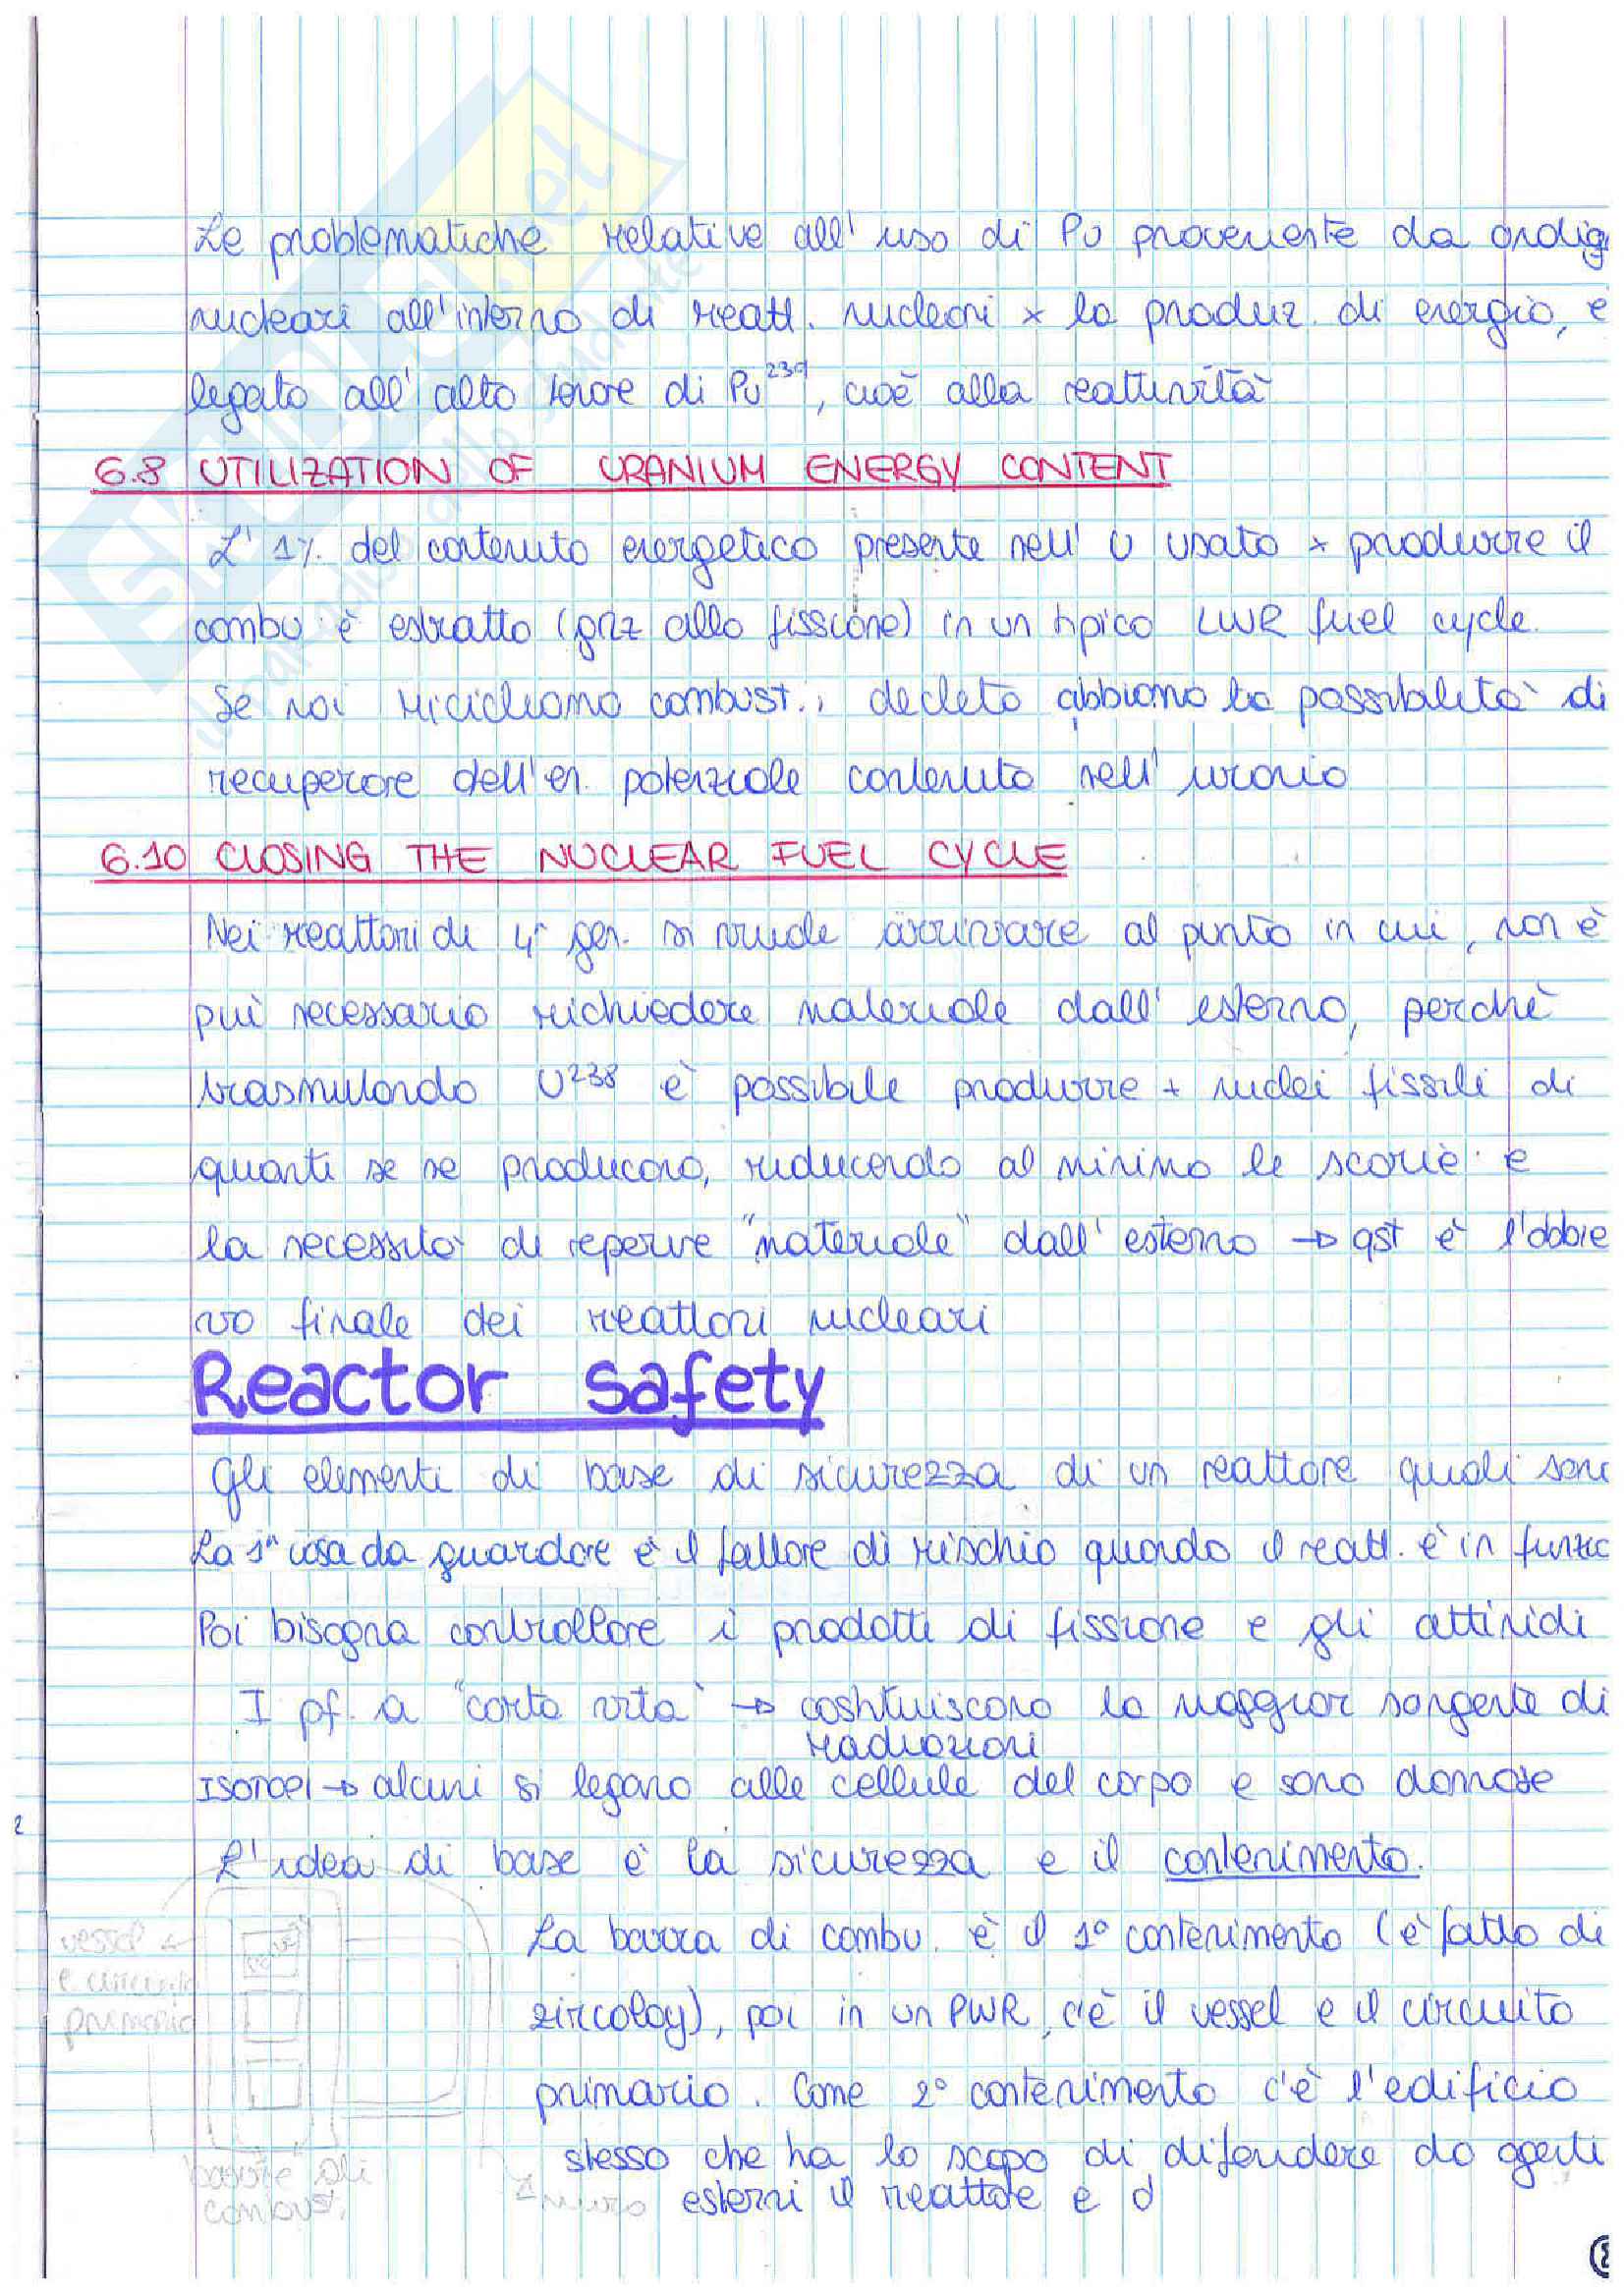 Le problematiche relative all' uso di Pu proveniente da ordig
nucleari all'interno di reatt. nucleari x la produz. di energia, è
legato all' alto tenore di Pu²³⁹, cioè alla reattività
6.8 UTILIZATION OF URANIUM ENERGY CONTENT
L' 1% del contenuto energetico presente nell' U usato x produrre il
combu. è estratto (griz alla fissione) in un tipico LWR fuel cycle.
Se noi ricicliamo combust. decleto abbiamo la possibilità di
recuperare dell'en. potenziale contenuta nell' uranio
6.10 CLOSING THE NUCLEAR FUEL CYCLE
Nei reattori di 4ª gen. si vuole arrivare al punto in cui, non è
più necessario richiedere materiale dall' esterno, perchè
trasmutando U²³⁸ è possibile produrre + nuclei fissili di
quanti se ne producono, riducendo al minimo le scorie e
la necessità di reperire "materiale" dall' esterno → qst è l'obbie
vo finale dei reattori nucleari
Reactor safety
Gli elementi di base di sicurezza di un reattore quali sono
La 1ª cosa da guardare è il fattore di rischio quando il reatt. è in funzio
Poi bisogna controllare i prodotti di fissione e gli attinidi
I pf. a "corta vita" → costituiscono la maggior sorgente di
radiazioni
→ alcuni si legano alle cellule del corpo e sono dannose
2
L'idea di base è la sicurezza e il contenimento.
vessel e circuito primario
La barra di combu. è il 1° contenimento (è fatto di
zircoloy), poi in un PWR, c'è il vessel e il circuito
primario. Come 2° contenimento c'è l'edificio
stesso che ha lo scopo di difendere da agenti
esterni il reattore e d
barre di combust.
muro